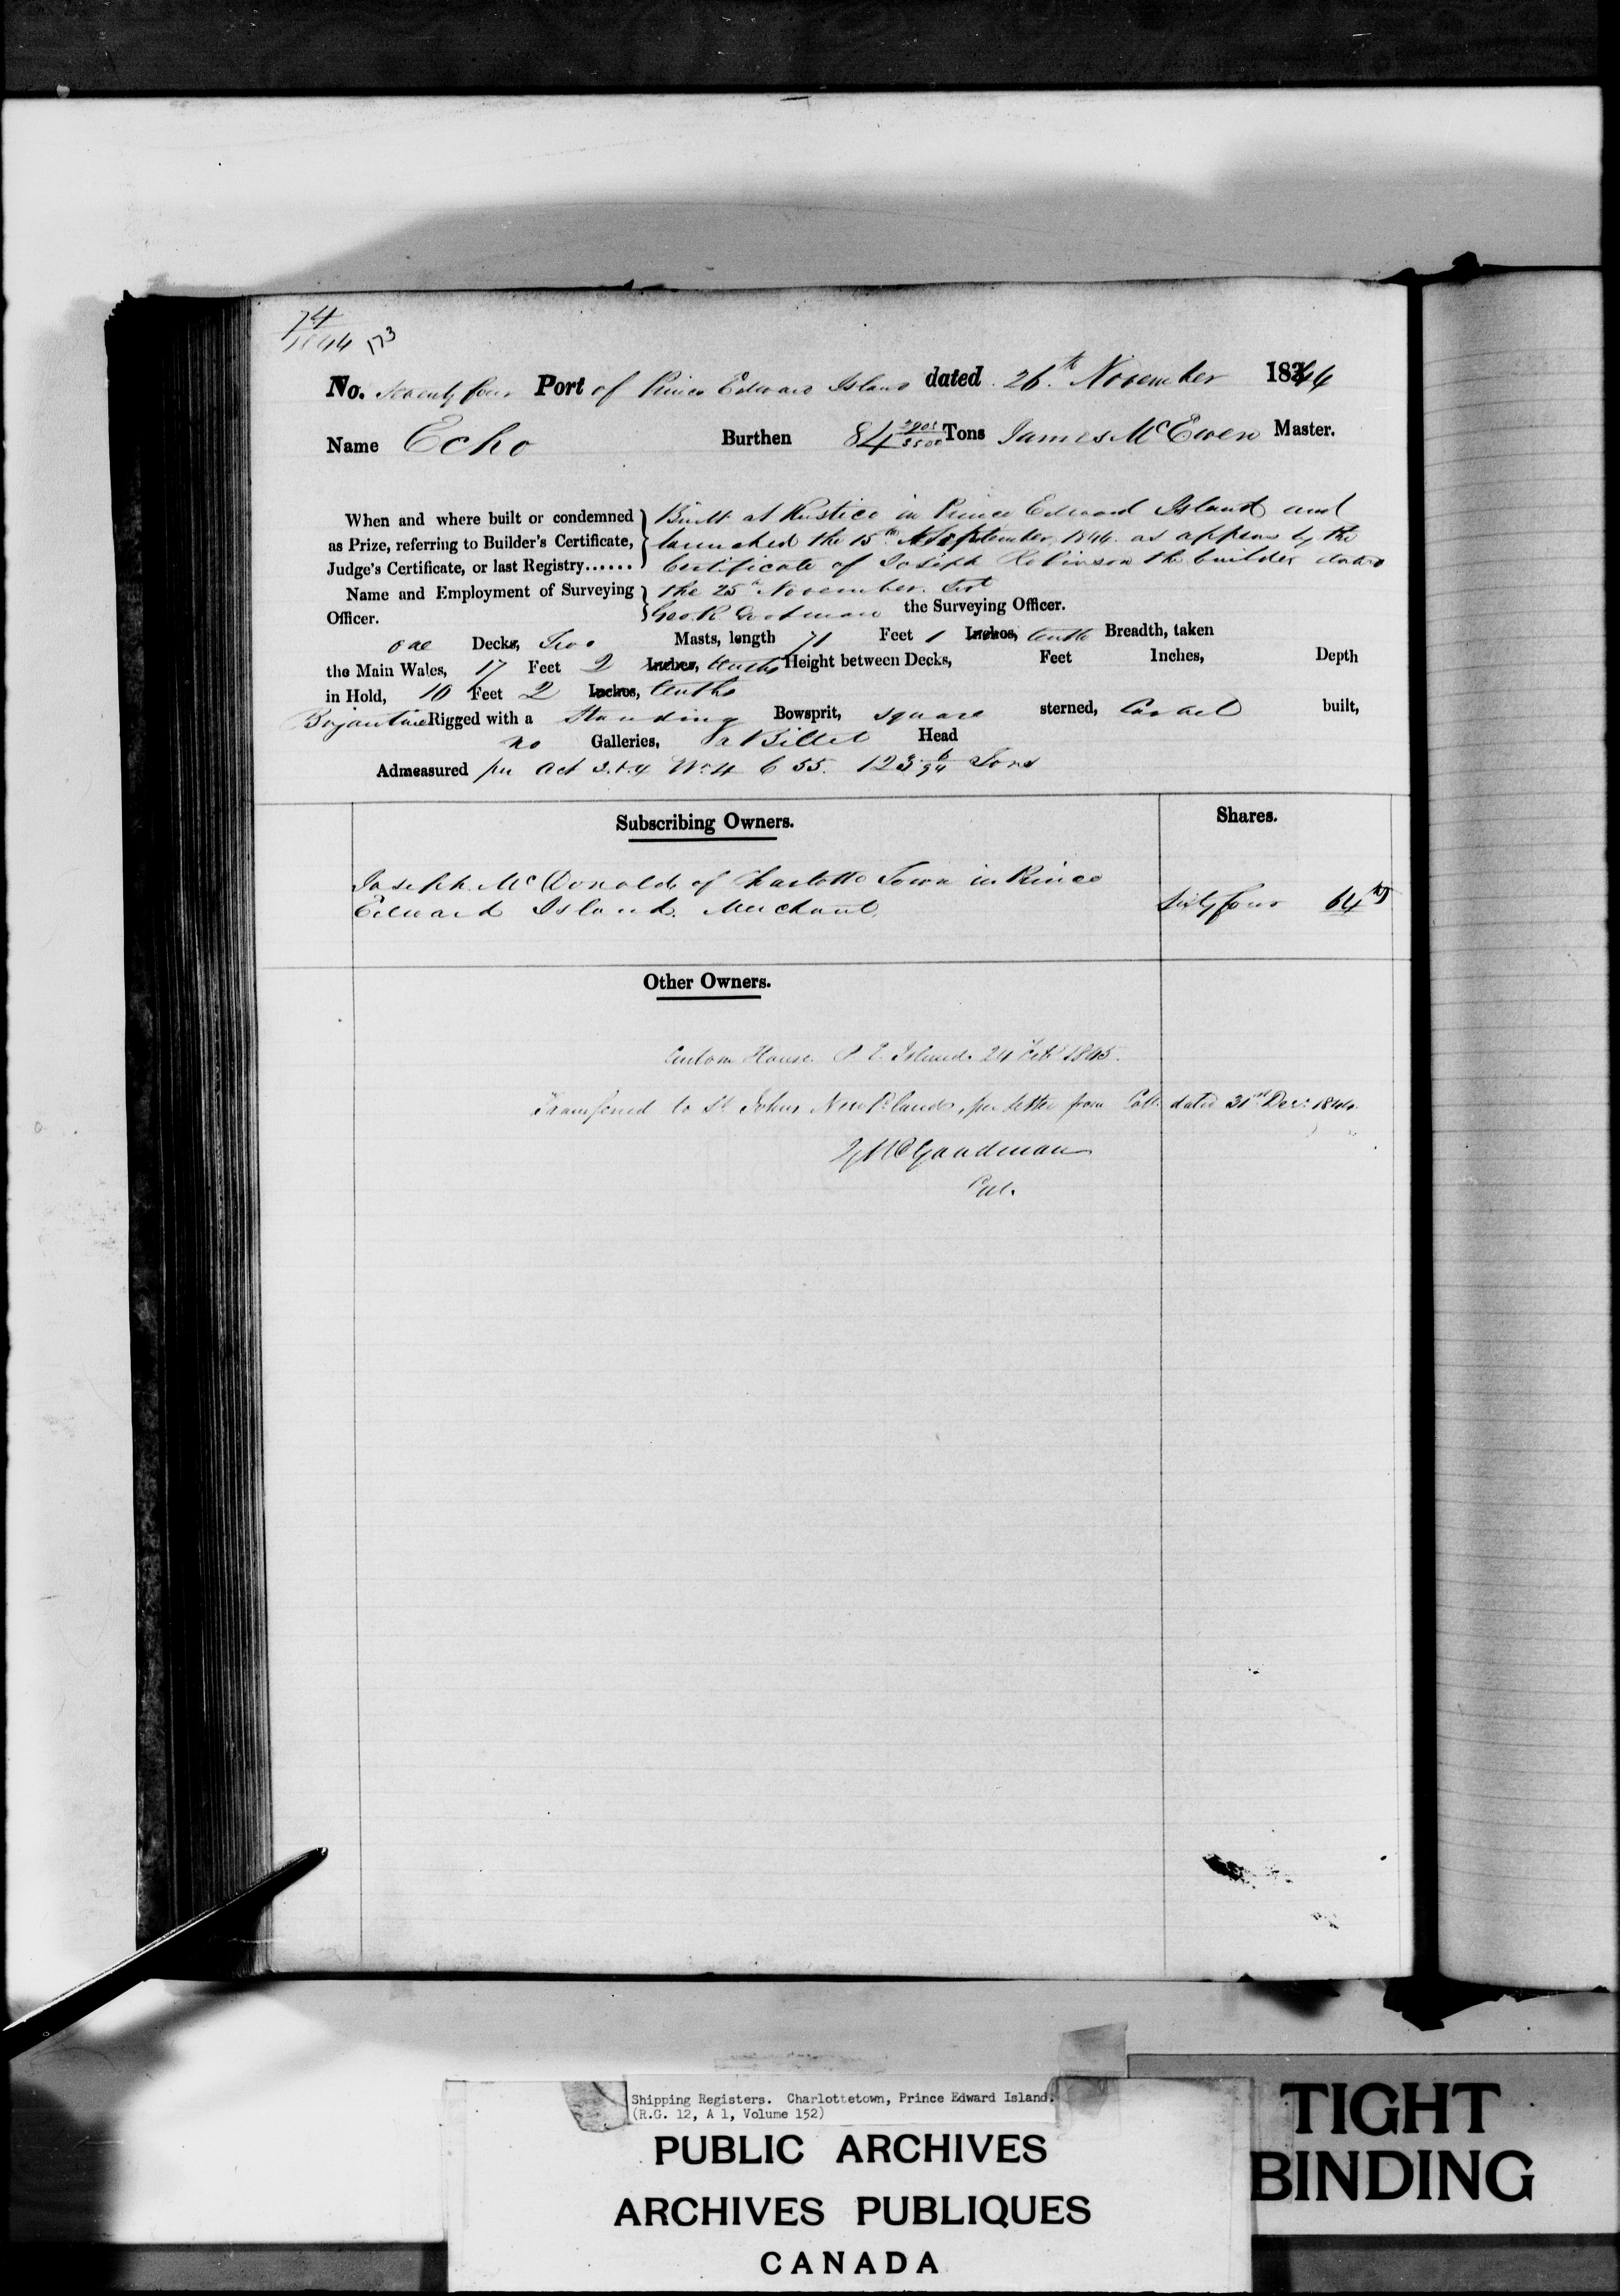 74
1844 173
No. Seventy four Port of Prince Edward Island dated 26th November 1844
Name Echo Burthen 84 2905/3500 Tons James McEwen Master.
When and where built or condemned Built at Rustico in Prince Edward Island and
as Prize, referring to Builder's Certificate, launched the 15th September 1844 as appears by the
Judge's Certificate, or last Registry...... Certificate of Joseph Robinson the builder dated
Name and Employment of Surveying the 25th November Inst
Officer. Geo R Goodman the Surveying Officer.
one Decks, Two Masts, length 71 Feet 1 Inches, tenth Breadth, taken
the Main Wales, 17 Feet 2 Inches, tenths Height between Decks, Feet Inches, Depth
in Hold, 10 Feet 2 Inches, tenths
Brigantine Rigged with a Standing Bowsprit, square sterned, Carvel built,
no Galleries, a Billet Head
Admeasured per Act 3 & 4 Wm 4 C 55. 123 6/94 Tons
Subscribing Owners. Shares.
Joseph McDonald of Charlotte Town in Prince
Edward Island. Merchant Sixty four 64ths
Other Owners.
Custom House P. E. Island 24 Feb 1845.
Transferred to St Johns Newfland, per letter from Coll dated 31st Decr 1844.
G R Goodman
Shipping Registers. Charlottetown, Prince Edward Island.
(R.G. 12, A 1, Volume 152)
PUBLIC ARCHIVES
ARCHIVES PUBLIQUES
CANADA
TIGHT
BINDING